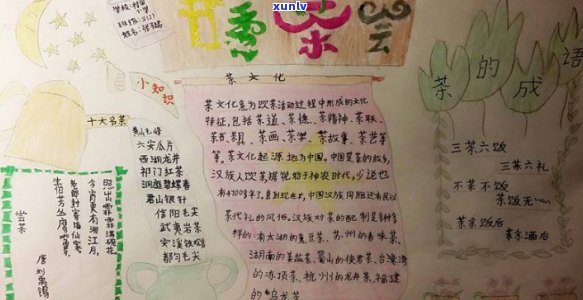 xunlv
学校:
班级:2121
姓名:张
茶
小知识
十大名茶
黄山毛峰
六安瓜片
西湖龙井
祁门红茶
洞庭碧螺春
君山银针
信阳毛尖
武夷岩茶
安溪铁观音
都匀毛尖
尝茶
唐 刘禹锡
生拍芳丛鹰
老郎封寄谪仙家
今宵更有湘江月,
照出霏霏满碗花
茶文化
茶文化意为饮茶活动过程中形成的文化
特征,包括茶道、茶德、茶精神、茶联、
茶具、茶画、茶学、茶故事、茶艺等
等,茶文化起源地为中国,中国是茶的故乡,
汉族人饮茶据说始于神农时代,少说也
有4700多年了。直到现在,中国汉族同胞还有民以
茶代礼的风俗。汉族对茶的配制是多种多
样的:有太湖的熏豆茶、苏州的香味茶、
湖南的姜盐茶、蜀山的侠君茶、台湾
的冻顶茶、杭州的龙井茶、福建
的乌龙茶
茶的成语
三茶六饭
三茶六礼
不茶不饭
茶饭无心
茶余饭后
茶余酒后